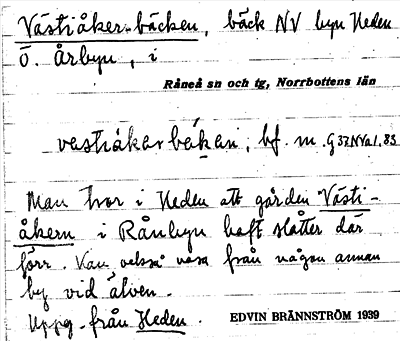 Västiåker-bäcken, bäck NV byn Heden
Ö. Årbyn, i
Råneå sn och tg, Norrbottens län
vestiåkarbękęn, bf. m. G37NVa1,83
Man tror i Heden att gården Västi-
åkern i Rånbyn haft slåtter där
förr. Kan också vara från någon annan
by vid älven.
Uppg. från Heden.
EDVIN BRÄNNSTRÖM 1939